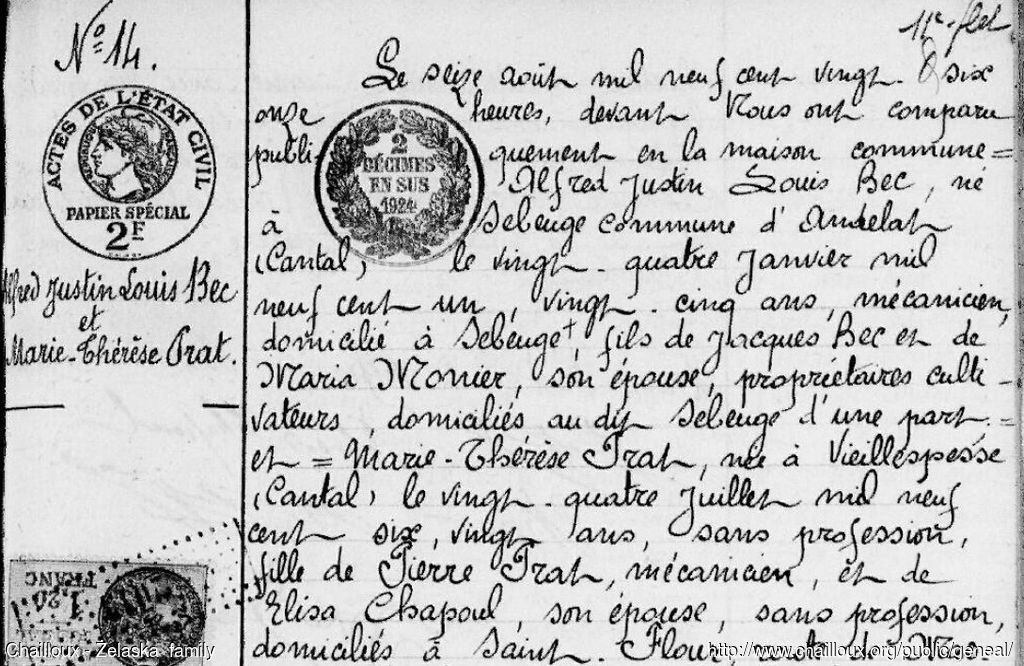 N° 14.
ACTES DE L'ÉTAT CIVIL
PAPIER SPÉCIAL
2F
Alfred Justin Louis Bec
et
Marie-Thérèse Prat.
FRANC
11e
Le seize août mil neuf cent vingt-six
onze heures, devant Nous ont comparu
publiquement en la maison commune =
Alfred Justin Louis Bec, né
à Sebeuge commune d'Andelat
(Cantal) le vingt-quatre Janvier mil
neuf cent un, vingt-cinq ans, mécanicien,
domicilié à Sebeuge, fils de Jacques Bec et de
Maria Monier, son épouse, propriétaires culti-
vateurs, domiciliés au dit Sebeuge d'une part. =
et = Marie-Thérèse Prat, née à Vieillespesse
(Cantal) le vingt-quatre Juillet mil neuf
cent six, vingt ans, sans profession,
fille de Pierre Prat, mécanicien, et de
Elisa Chapoul, son épouse, sans profession,
domiciliés à Saint-Flour,
2
DÉCIMES
EN SUS
1924
Chailloux - Zelaska family
http://www.chailloux.org/public/geneal/